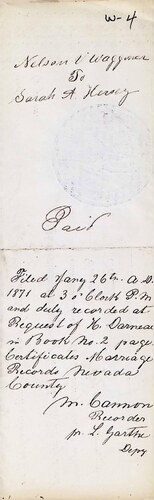 W-4
Nelson V Waggoner
To
Sarah A. Hersey
Paid
Filed Jany 26th A.D.
1871 at 3 o'Clock P.M
and duly recorded at
Request of N. Garneau
in Book No. 2 page
Certificates Marriage
Records Nevada
County
M. Cannon
Recorder
pr L. Garthe
Depy